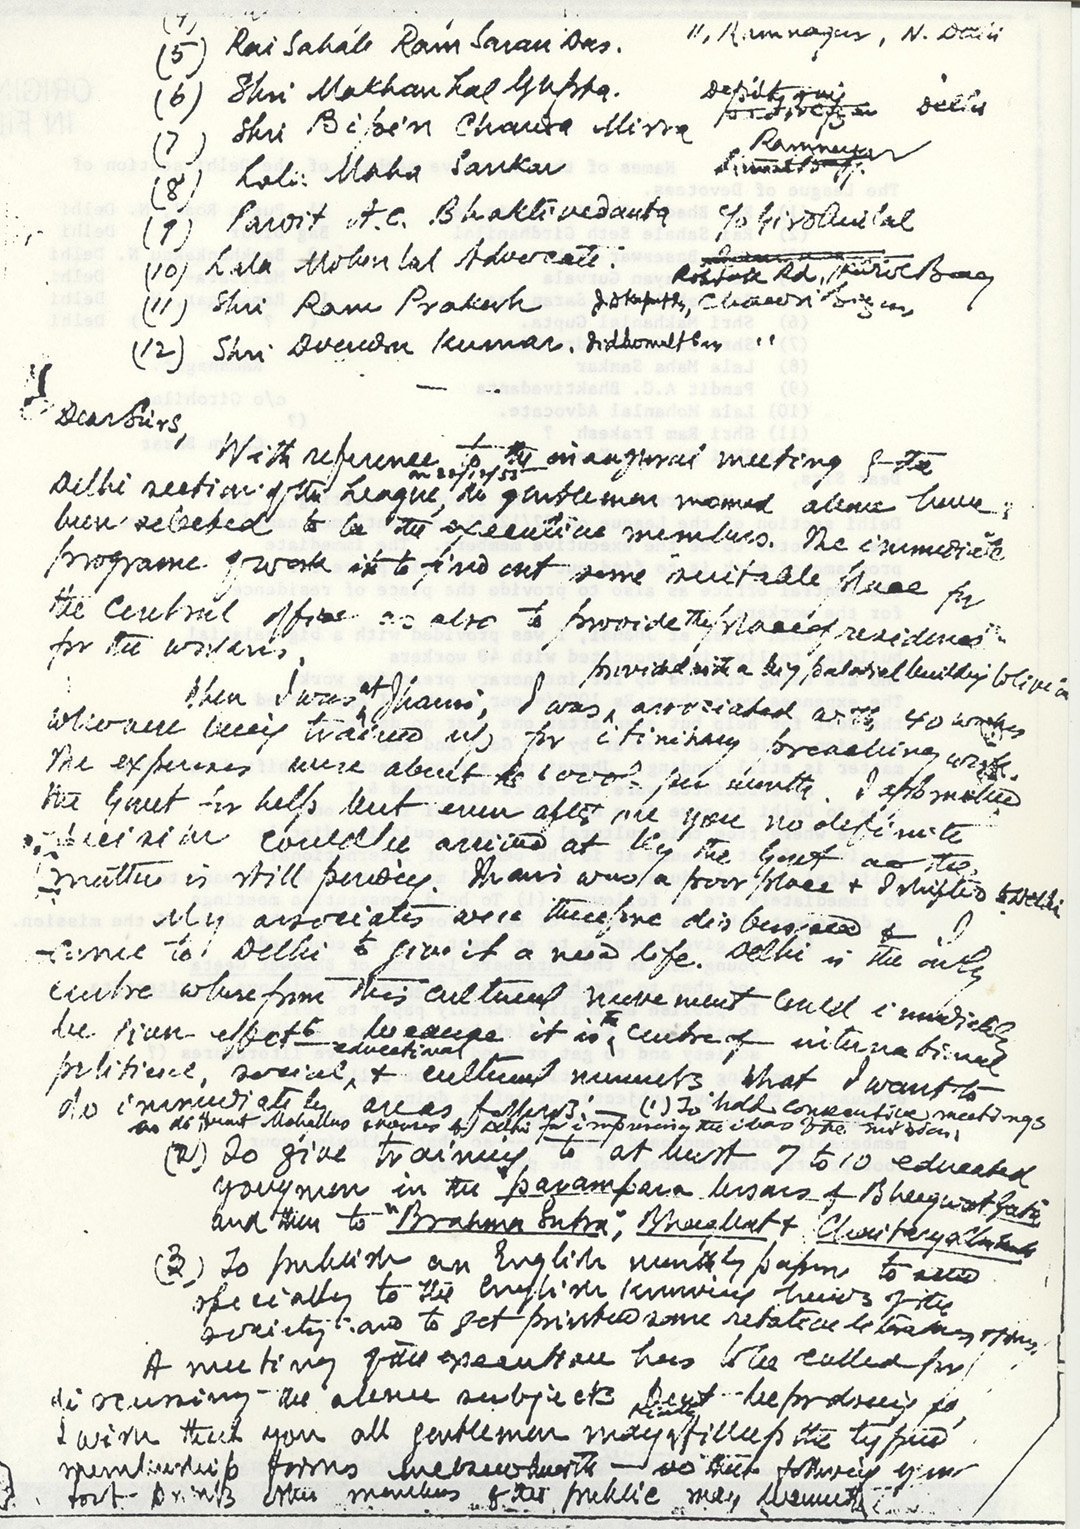 (5) Rai Sahab Ram Saran Das. 11, Ramnagar, N. Delhi
(6) Shri Makhanlal Gupta. Deputyganj Delhi
(7) Shri Bipin Chandra Misra Ramnagar
(8) Lala Maha Sankar
(9) Pandit A.C. Bhaktivedanta c/o Girdharilal
(10) Lala Mohanlal Advocate. Rohtak Rd, Karol Baug
(11) Shri Ram Prakesh Chawri Bazar
(12) Shri Devendra Kumar. Sidhomalthr "
Dear Sirs,
With reference to the inaugural meeting of the
Delhi section of the League, on 22/12/55 the gentlemen named above have
been selected to be the executive members. The immediate
programe of work is to find out some suitable place for
the central office as also to provide the place of residence
for the workers.
provided with a big palatial building to live in
When I was at Jhansi, I was associated with 40 workers
who were being trained up for itinirary preaching work.
The expenses were about Rs 1000/- per month. I approached
the Govt for help but even after one year no definite
decision could be arrived at by the Govt and the
matter is still pending. Jhansi was a poor place & I shifted to Delhi
My associates were therefore disbursed & I
came to Delhi to give it a new life. Delhi is the only
centre wherefrom this cultural movement could immediately
be given effect to because it is the centre of international
political, social, educational & cultural movements. What I want to
do immediately are as follows:— (1) To hold consecutive meetings
at different Mahallas of Delhi for impressing the ideas of the mission.
(2) To give training to at least 7 to 10 educated
young men in the parampara lessons of Bhagwat Gita
and then to "Brahma Sutra", Bhagbat & Chaitanya Charitamrita
(3) To publish an English monthly paper to send
specially to the English knowing heads of the
society and to get printed some relative literatures
A meeting of the executive has to be called for
discussing the above subjects. But before doing so,
I wish that you all gentlemen may kindly fill up the typed
membership forms enclosed herewith — so that following your
foot prints other members of the public may